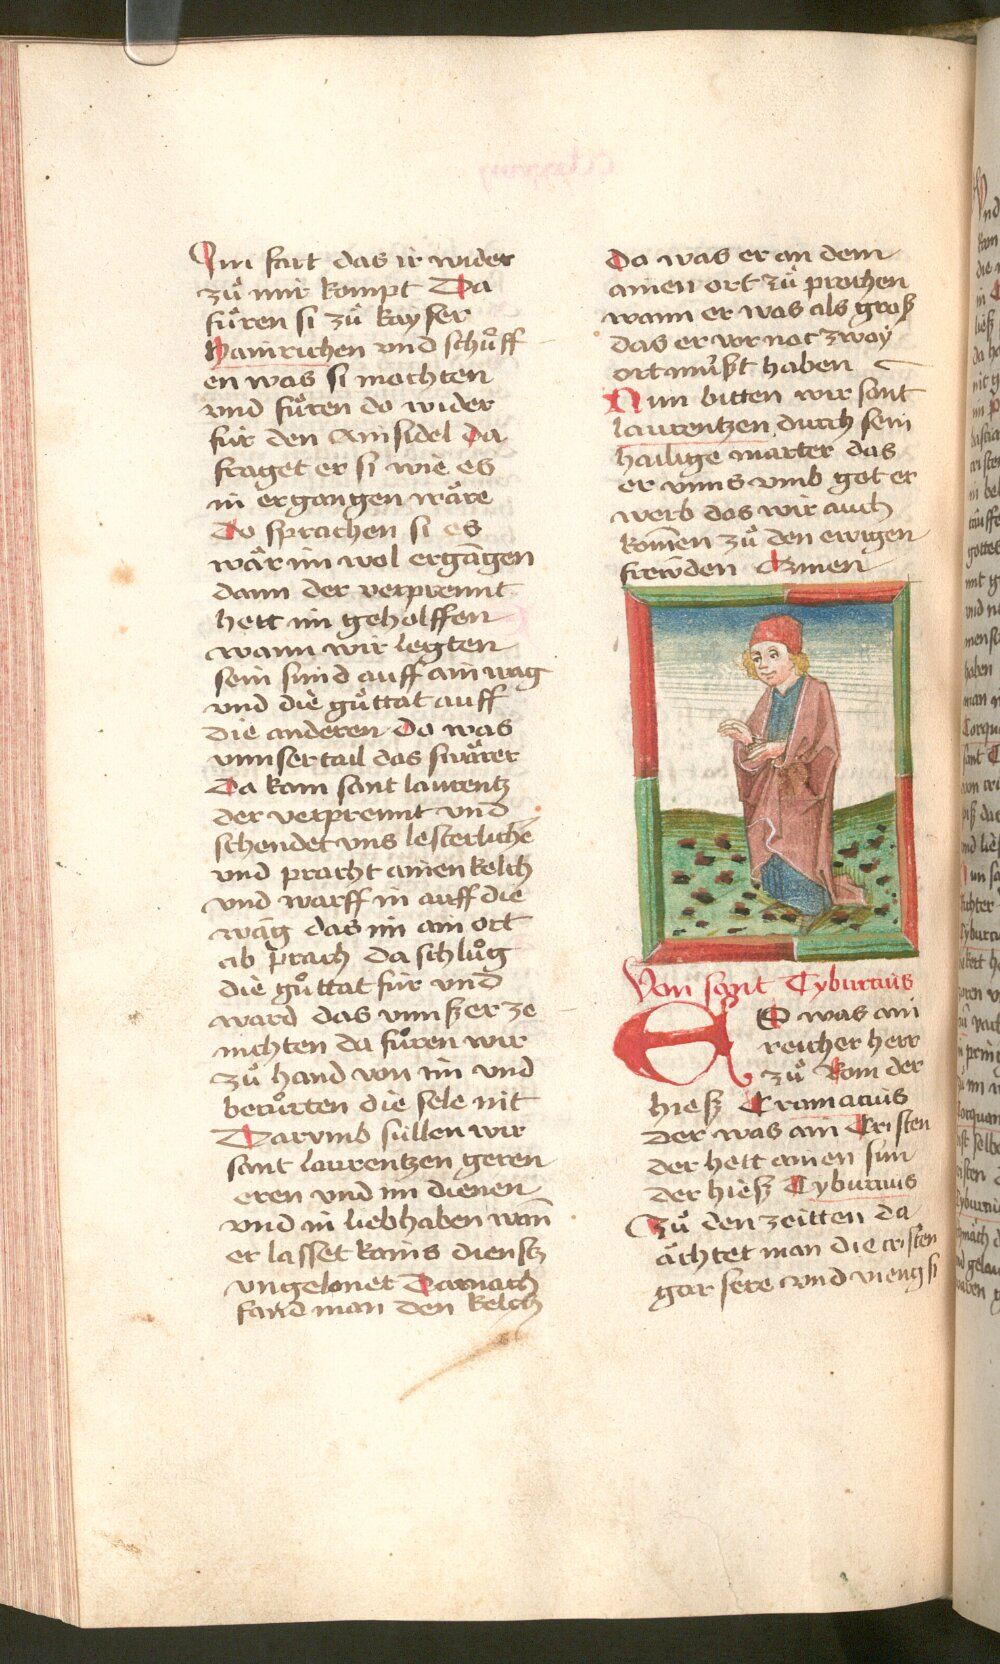 Jm fart das ir wider
zuͦ mir kompt Da
fuͤren si zuͦ kayser
Hainrichen vnd schuͦff
en was si mochten
vnd fuͤren do wider
fuͤr den Ainsidel Da
fraget er si wie es
in ergangen waͤre
Do sprachen si es
waͤr im vol ergāgen
dann der verprennt
hett im geholffen
wann wir legten
sein sünd auff ain wag
vnd die guͦttat auff
die anderen Do was
vnnser tail das swaͤrer
Da kam sant laurentz
der verprennt vnd
schendet vns lesterliche
vnd pracht ainen kelch
vnd warff in auff die
wag das im ain ort
ab prach da schluͦg
die guͦttat für vnd
ward das vnnszer ze
nichten da fuͤren wir
zuͦ hand von im vnd
beruͦrten die sele nit
Darvmb süllen wir
sant laurentzen geren
eren vnd im dienen
vnd in lieb haben wañ
er lasset kains dienstz
vngelonet Darnach
fand man den kelch
Da was er an dem
ainen ort zuͦ prochen
wann er was als grosz
das er vor nac zway
ort muͤszt haben
Nun bitten wir sant
laurentzen durch sein
hailige marter das
er vnns vmb got er
werb das wir auch
komēn zuͦ den ewigen
frewden Amen
Von sant Tyburcius
ES was ain
reicher herr
zuͦ Rom der
hiesz Cramacius
der was ain Cristen
der hett ainen sun
der hiesz Tyburcius
Zuͦ den zeitten da
aͤchtet man die cristen
gar sere vnd vieng si